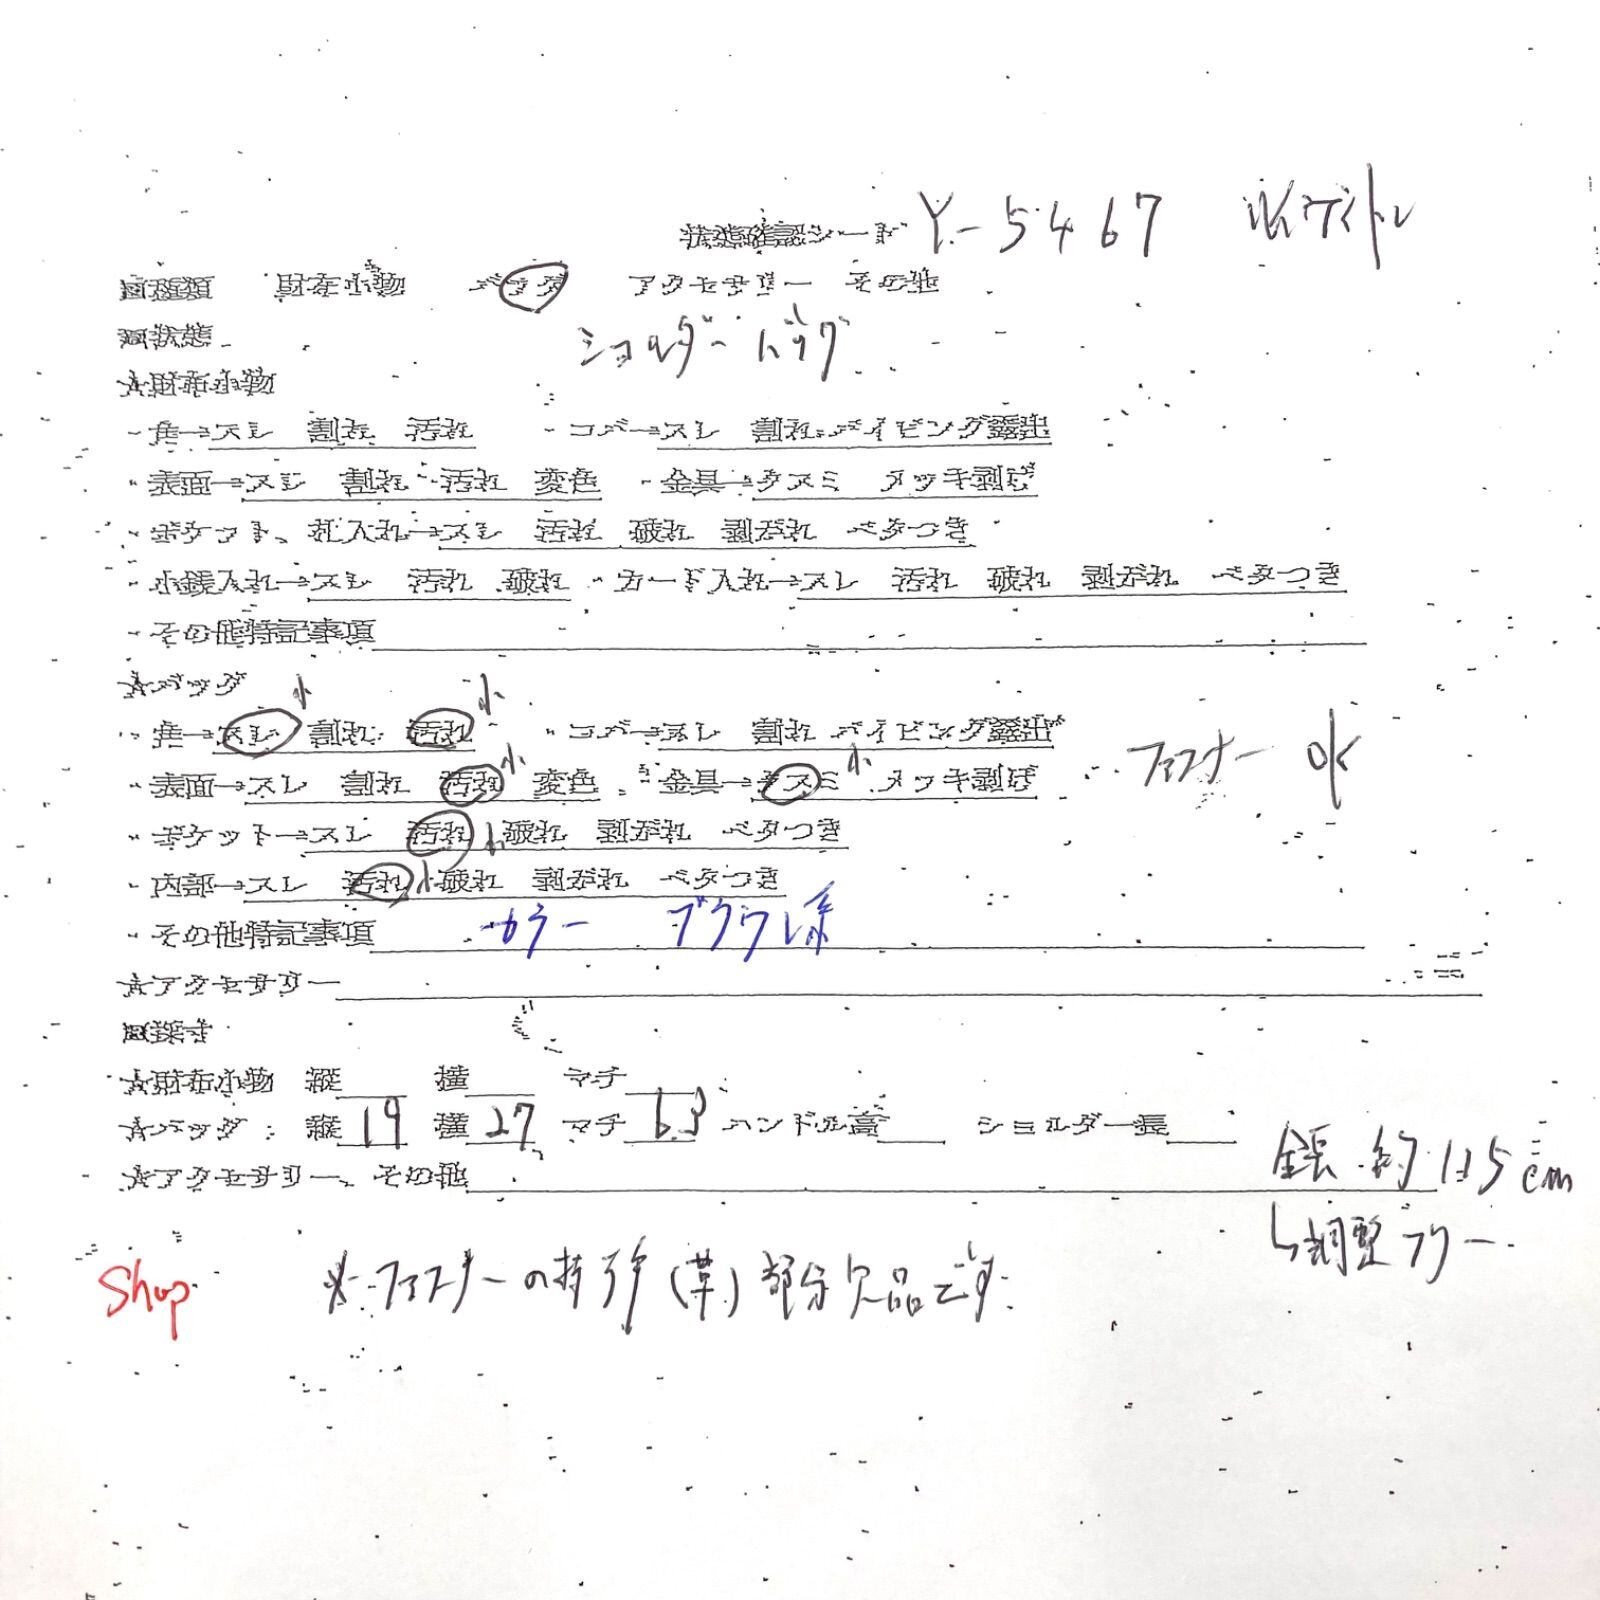 状態確認シート Y-5467
□種類 財布小物 バッグ アクセサリー その他
□状態 ショルダーバッグ
☆財布小物
・角→スレ 割れ 汚れ ・コバ→スレ 割れ パイピング露出
・表面→スレ 割れ 汚れ 変色 ・金具→クスミ メッキ剥げ
・ポケット、札入れ→スレ 汚れ 破れ 剥がれ ベタつき
・小銭入れ→スレ 汚れ 破れ ・カード入れ→スレ 汚れ 破れ 剥がれ ベタつき
・その他特記事項
☆バッグ
・角→スレ小 割れ 汚れ小 ・コバ→スレ 割れ パイピング露出
・表面→スレ 割れ 汚れ小 変色 ・金具→クスミ小 メッキ剥げ ファスナー OK
・ポケット→スレ 汚れ小 破れ 剥がれ ベタつき
・内部→スレ 汚れ小 破れ 剥がれ ベタつき
・その他特記事項 カラー ブラウン系
☆アクセサリー
□採寸
☆財布小物 縦 横 マチ
☆バッグ 縦 19 横 27 マチ 6.5 ハンドル高 ショルダー長
全長 約115cm
☆アクセサリー、その他
↳調整フリー
Shop ※ファスナーの持ち手(革)部分欠品です